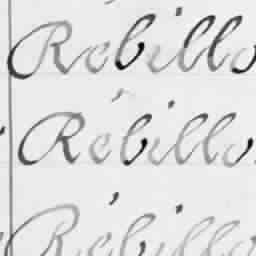 Rébillo
Rébillo
Rébillo